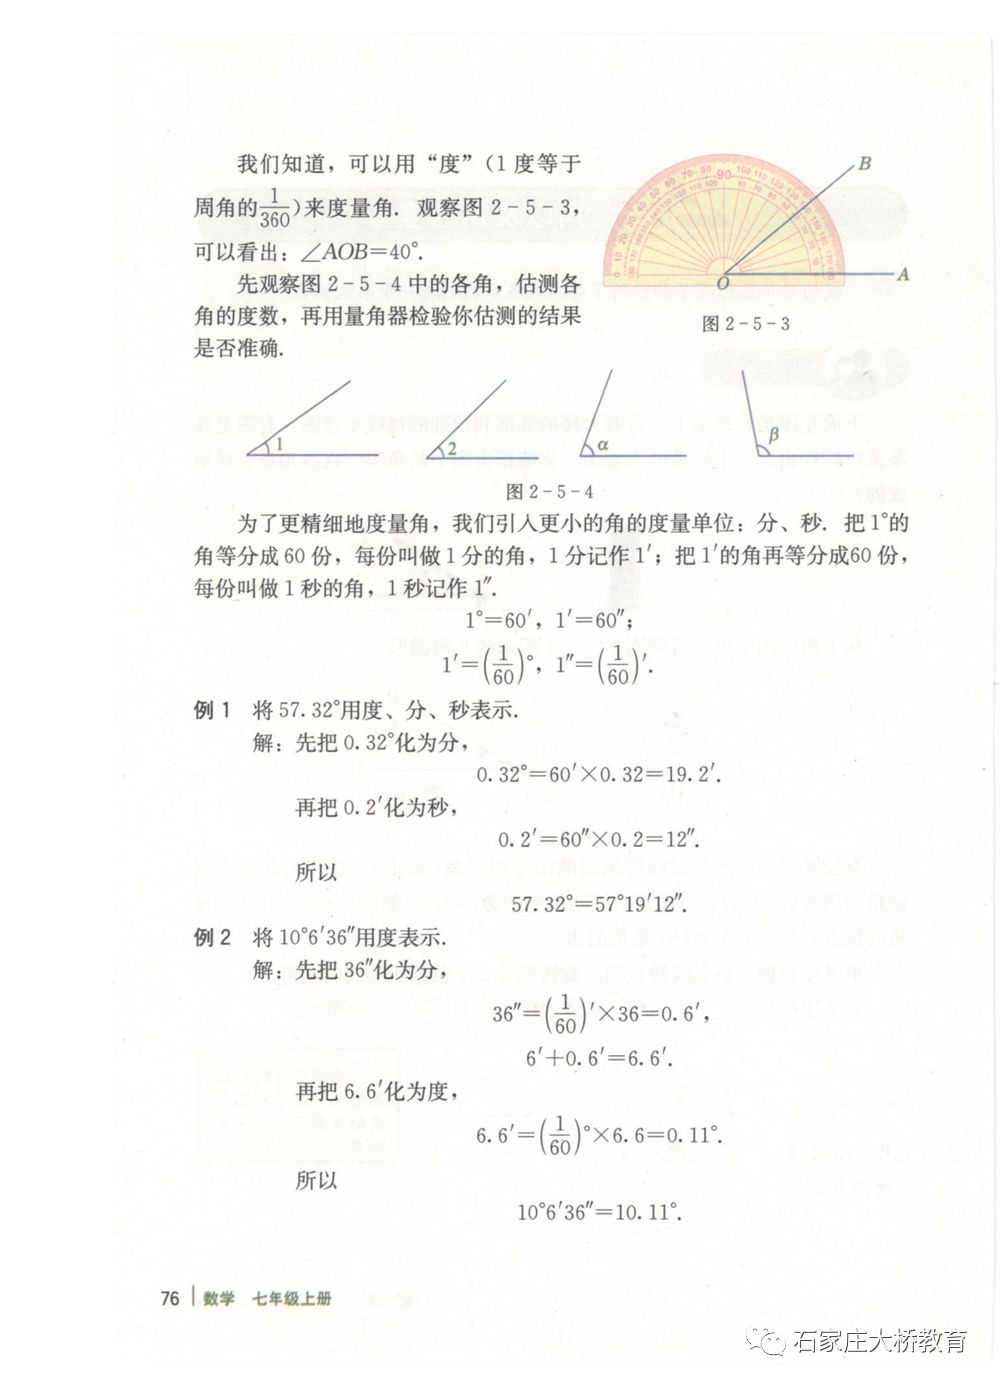 我们知道，可以用“度”（1 度等于
周角的1/360）来度量角. 观察图 2-5-3，
可以看出：∠AOB=40°.
先观察图 2-5-4 中的各角，估测各
角的度数，再用量角器检验你估测的结果
是否准确.
B
A
O
图 2-5-3
1
2
α
β
图 2-5-4
为了更精细地度量角，我们引入更小的角的度量单位：分、秒. 把 1°的
角等分成 60 份，每份叫做 1 分的角，1 分记作 1′；把 1′的角再等分成60 份，
每份叫做 1 秒的角，1 秒记作 1″.
1°=60′，1′=60″；
1′=(1/60)°，1″=(1/60)′.
例 1 将 57.32°用度、分、秒表示.
解：先把 0.32°化为分，
0.32°=60′×0.32=19.2′.
再把 0.2′化为秒，
0.2′=60″×0.2=12″.
所以
57.32°=57°19′12″.
例 2 将 10°6′36″用度表示.
解：先把 36″化为分，
36″=(1/60)′×36=0.6′，
6′+0.6′=6.6′.
再把 6.6′化为度，
6.6′=(1/60)°×6.6=0.11°.
所以
10°6′36″=10.11°.
76 数学 七年级上册
石家庄大桥教育